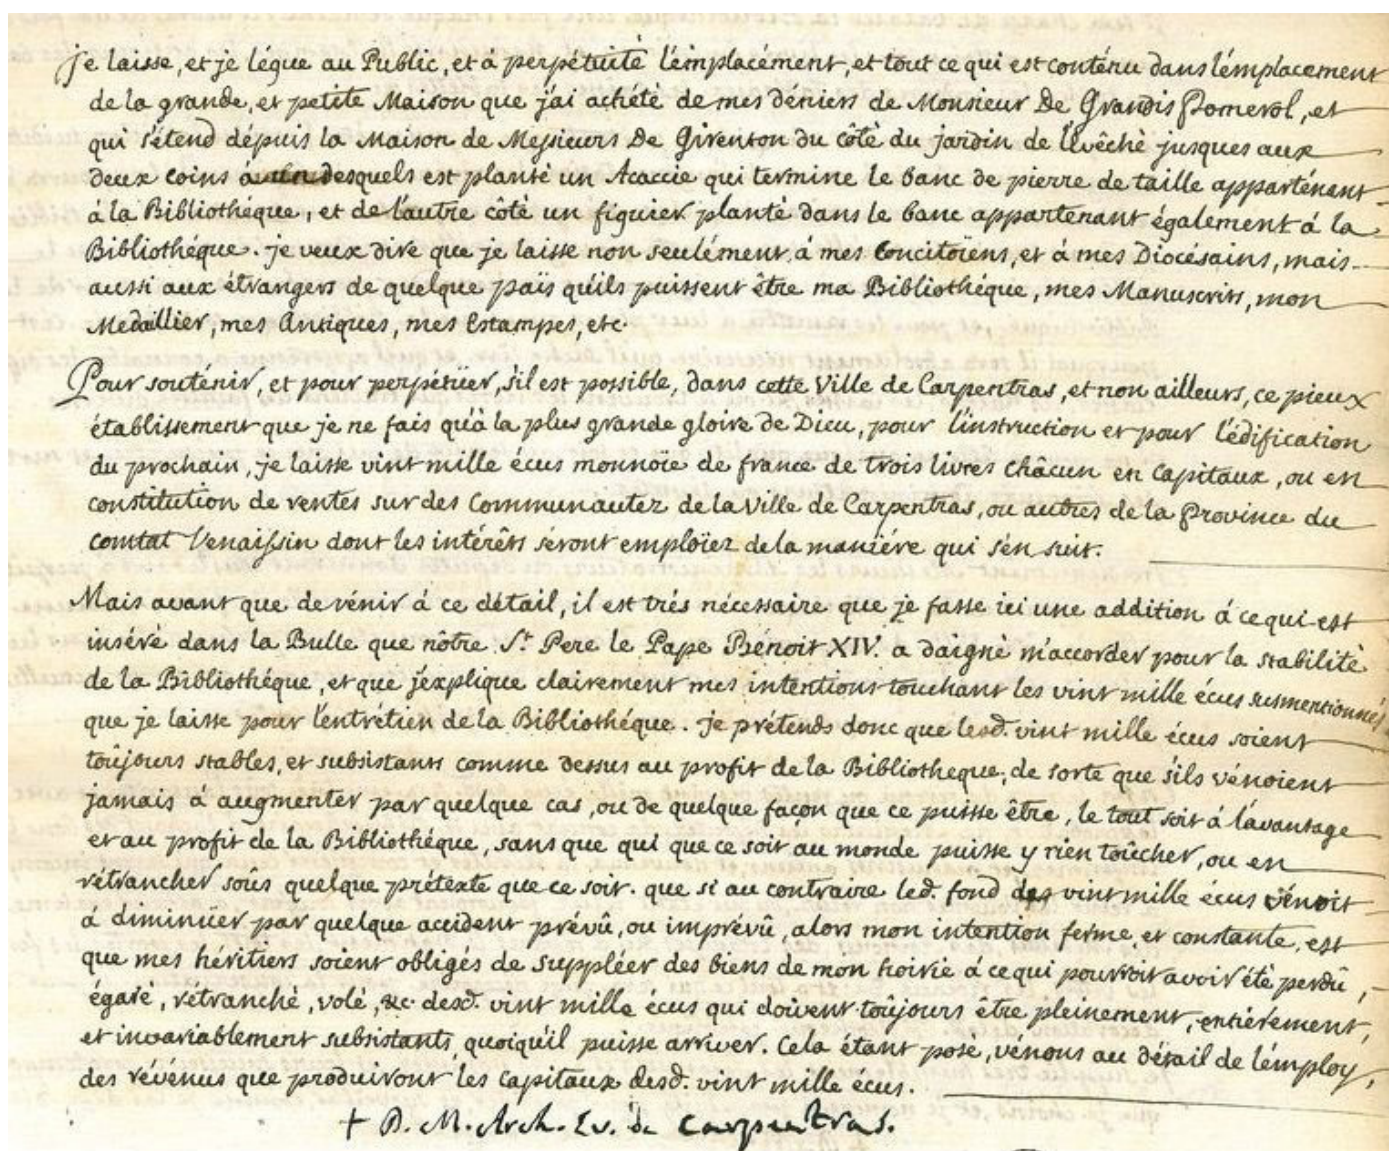 je laisse, et je légue au Public, et à perpétuité l'émplacémént, et tout ce qui est conténu dans l'émplacement
de la grande, et petite Maison que j'ai achété de mes déniers de Monsieur De Grandis Pomerol, et
qui s'étend dépuis la Maison de Messieurs De Girenton du côté du jardin de l'Evêché jusques aux
deux coins desquels est planté un Acaccie qui termine le banc de pierre de taille apparténant
á la Bibliothéque, et de l'autre côté un figuier planté dans le banc appartenant également á la
Bibliothéque. je veux dire que je laisse non seulément á mes Concitoïens, et á mes Diocésains, mais
aussi aux étrangers de quelque païs qu'ils puissent être ma Bibliothéque, mes Manuscrits, mon
Medaillier, mes Antiques, mes Estampes, etc.
Pour souténir, et pour perpétüer, s'il est possible, dans cette Ville de Carpentras, et non ailleurs, ce pieux
établissement que je ne fais qu'à la plus grande gloire de Dieu, pour l'instruction et pour l'édification
du prochain, je laisse vint mille écus monnoïe de france de trois livres châcun en capitaux, ou en
constitution de rentes sur des Communautez de la Ville de Carpentras, ou autres de la Province du
comtat Venaissin dont les intérêts séront emploïez de la maniére qui s'en suit.
Mais avant que de vénir á ce détail, il est trés nécessaire que je fasse ici une addition á ce qui est
inséré dans la Bulle que nôtre St. Pere le Pape Bénoit XIV. a daigné m'accorder pour la stabilité
de la Bibliothéque, et que j'explique clairement mes intentions touchant les vint mille écus susmentionnés
que je laisse pour l'entrétien de la Bibliothéque. je prétends donc que lesd. vint mille écus soient
toûjours stables, et subsistants comme dessus au profit de la Bibliotheque, de sorte que s'ils vénoient
jamais á augmenter par quelque cas, ou de quelque façon que ce puisse être, le tout soit á l'avantage
et au profit de la Bibliothéque, sans que qui que ce soit au monde puisse y rien toûcher, ou en
rétrancher soûs quelque prétexte que ce soit. que si au contraire led. fond des vint mille écus vénoit
á diminüer par quelque accident prévû, ou imprévû, alors mon intention ferme, et constante, est
que mes héritiers soient obligés de suppléer des biens de mon hoirie á ce qui pourroit avoir été perdû,
égaré, rétranché, volé, &c. desd. vint mille écus qui doivent toûjours être pleinement, entiérement,
et invariablement subsistants, quoiqu'il puisse arriver. Cela étant posé, vénons au détail de l'émploy,
des révénus que produiront les capitaux desd. vint mille écus.
+ D. M. Arch. Ev. de Carpentras.